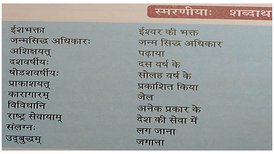 स्मरणीयाः शब्दार्थ
ईशभक्ता ईश्वर की भक्त
जन्मसिद्ध अधिकारः जन्म सिद्ध अधिकार
अशिक्षयत् पढ़ाया
दशवर्षीयः दस वर्ष के
षोडशवर्षीयः सोलह वर्ष के
प्राकाशयत् प्रकाशित किया
कारागारम् जेल
विविधानि अनेक प्रकार के
राष्ट्र सेवायाम् देश की सेवा में
संलग्नः लग जाना
उद्बुद्धम् जगाना